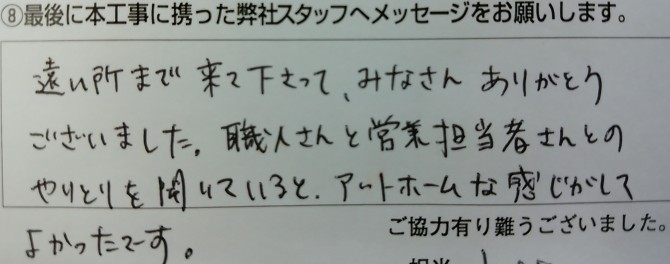 ⑧最後に本工事に携った弊社スタッフへメッセージをお願いします。
遠い所まで来て下さって、みなさん ありがとう
ございました。職人さんと営業担当者さんとの
やりとりを聞いていると、アットホームな感じがして
よかったでーす。
ご協力有り難うございました。
担当